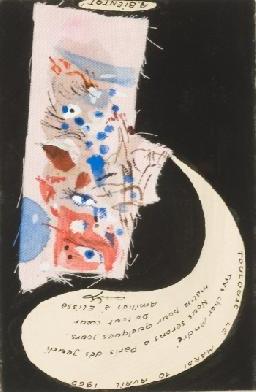 A BIENTOT
TOULOUSE LE MARDI 10 AVRIL
très cher andré,
Nous serons a
Paris dès jeudi
matin pour quelques jours
De tout cœur
Amitiés à Elisa